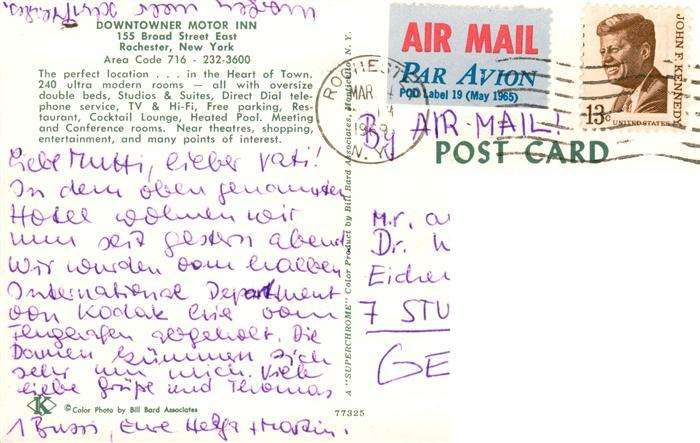 DOWNTOWNER MOTOR INN
155 Broad Street East
Rochester, New York
Area Code 716 - 232-3600
The perfect location . . . in the Heart of Town.
240 ultra modern rooms — all with oversize
double beds, Studios & Suites, Direct Dial tele-
phone service, TV & Hi-Fi, Free parking, Res-
taurant, Cocktail Lounge, Heated Pool. Meeting
and Conference rooms. Near theatres, shopping,
entertainment, and many points of interest.
Liebe Mutti, lieber Vati!
In dem oben genannten
Hotel wohnen wir
nun seit gestern abend
Wir wurden vom halben
International Department
von Kodak hier vom
Flughafen abgeholt. Die
Damen kümmern sich
sehr um mich. Viele
liebe Grüße und Thomas
1 Bussi, Eure Helga + Martin.
K
© Color Photo by Bill Bard Associates
77325
A "SUPERCHROME" Color Product by Bill Bard Associates, Monticello, N. Y.
AIR MAIL
PAR AVION
POD Label 19 (May 1965)
ROCHESTER
MAR
1969
N. Y.
JOHN F. KENNEDY
13c
UNITED STATES
By AIR-MAIL!
POST CARD
Mr.
Dr.
7 STU
GE